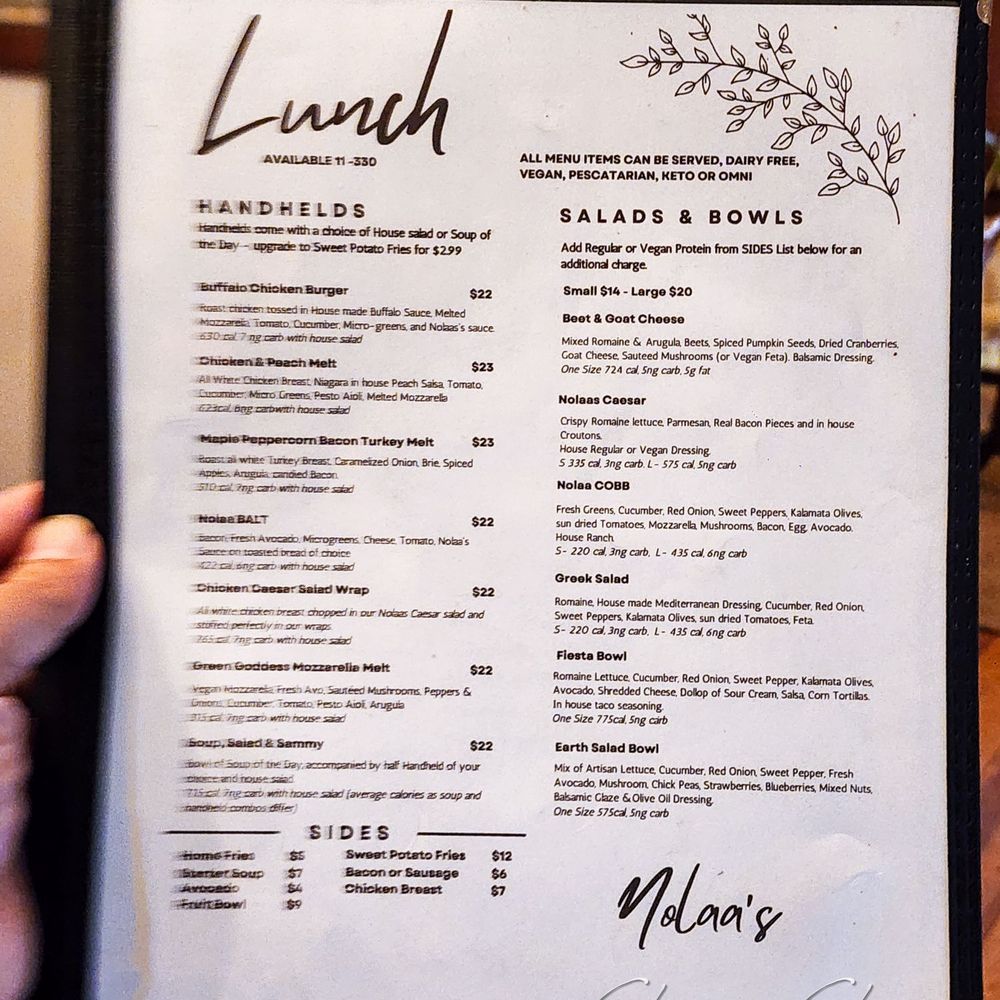 Lunch
AVAILABLE 11 -330
ALL MENU ITEMS CAN BE SERVED, DAIRY FREE,
VEGAN, PESCATARIAN, KETO OR OMNI
HANDHELDS
Handhelds come with a choice of House salad or Soup of
the Day - upgrade to Sweet Potato Fries for $2.99
Buffalo Chicken Burger $22
Roast chicken tossed in House made Buffalo Sauce, Melted
Mozzarella, Tomato, Cucumber, Micro-greens, and Nolaas's sauce.
630 cal, 7 ng carb with house salad
Chicken & Peach Melt $23
All White Chicken Breast, Niagara in house Peach Salsa, Tomato,
Cucumber, Micro Greens, Pesto Aioli, Melted Mozzarella
623cal, 6ng carbwith house salad
Maple Peppercorn Bacon Turkey Melt $23
Roast all white Turkey Breast, Caramelized Onion, Brie, Spiced
Apples, Arugula, candied Bacon.
510 cal, 7ng carb with house salad
Nolaa BALT $22
Bacon, Fresh Avocado, Microgreens, Cheese, Tomato, Nolaa's
Sauce on toasted bread of choice
422 cal, 6ng carb with house salad
Chicken Caesar Salad Wrap $22
All white chicken breast chopped in our Nolaas Caesar salad and
stuffed perfectly in our wraps.
765 cal, 7ng carb with house salad
Green Goddess Mozzarella Melt $22
Vegan Mozzarella, Fresh Avo, Sautéed Mushrooms, Peppers &
Onions, Cucumber, Tomato, Pesto Aioli, Arugula
cal, 7ng carb with house salad
Soup, Salad & Sammy $22
Bowl of Soup of the Day, accompanied by half Handheld of your
choice and house salad
715 cal, 7ng carb with house salad (average calories as soup and
handheld combos differ)
SIDES
Home Fries $5 Sweet Potato Fries $12
Starter Soup $7 Bacon or Sausage $6
Avocado $4 Chicken Breast $7
Fruit Bowl $9
SALADS & BOWLS
Add Regular or Vegan Protein from SIDES List below for an
additional charge.
Small $14 - Large $20
Beet & Goat Cheese
Mixed Romaine & Arugula, Beets, Spiced Pumpkin Seeds, Dried Cranberries,
Goat Cheese, Sauteed Mushrooms (or Vegan Feta). Balsamic Dressing.
One Size 724 cal, 5ng carb, 5g fat
Nolaas Caesar
Crispy Romaine lettuce, Parmesan, Real Bacon Pieces and in house
Croutons.
House Regular or Vegan Dressing.
S 335 cal, 3ng carb. L - 575 cal, 5ng carb
Nolaa COBB
Fresh Greens, Cucumber, Red Onion, Sweet Peppers, Kalamata Olives,
sun dried Tomatoes, Mozzarella, Mushrooms, Bacon, Egg, Avocado.
House Ranch.
S- 220 cal, 3ng carb, L- 435 cal, 6ng carb
Greek Salad
Romaine, House made Mediterranean Dressing, Cucumber, Red Onion,
Sweet Peppers, Kalamata Olives, sun dried Tomatoes, Feta.
S- 220 cal, 3ng carb, L- 435 cal, 6ng carb
Fiesta Bowl
Romaine Lettuce, Cucumber, Red Onion, Sweet Pepper, Kalamata Olives,
Avocado, Shredded Cheese, Dollop of Sour Cream, Salsa, Corn Tortillas.
In house taco seasoning.
One Size 775cal, 5ng carb
Earth Salad Bowl
Mix of Artisan Lettuce, Cucumber, Red Onion, Sweet Pepper, Fresh
Avocado, Mushroom, Chick Peas, Strawberries, Blueberries, Mixed Nuts,
Balsamic Glaze & Olive Oil Dressing.
One Size 575cal, 5ng carb
Nolaa's